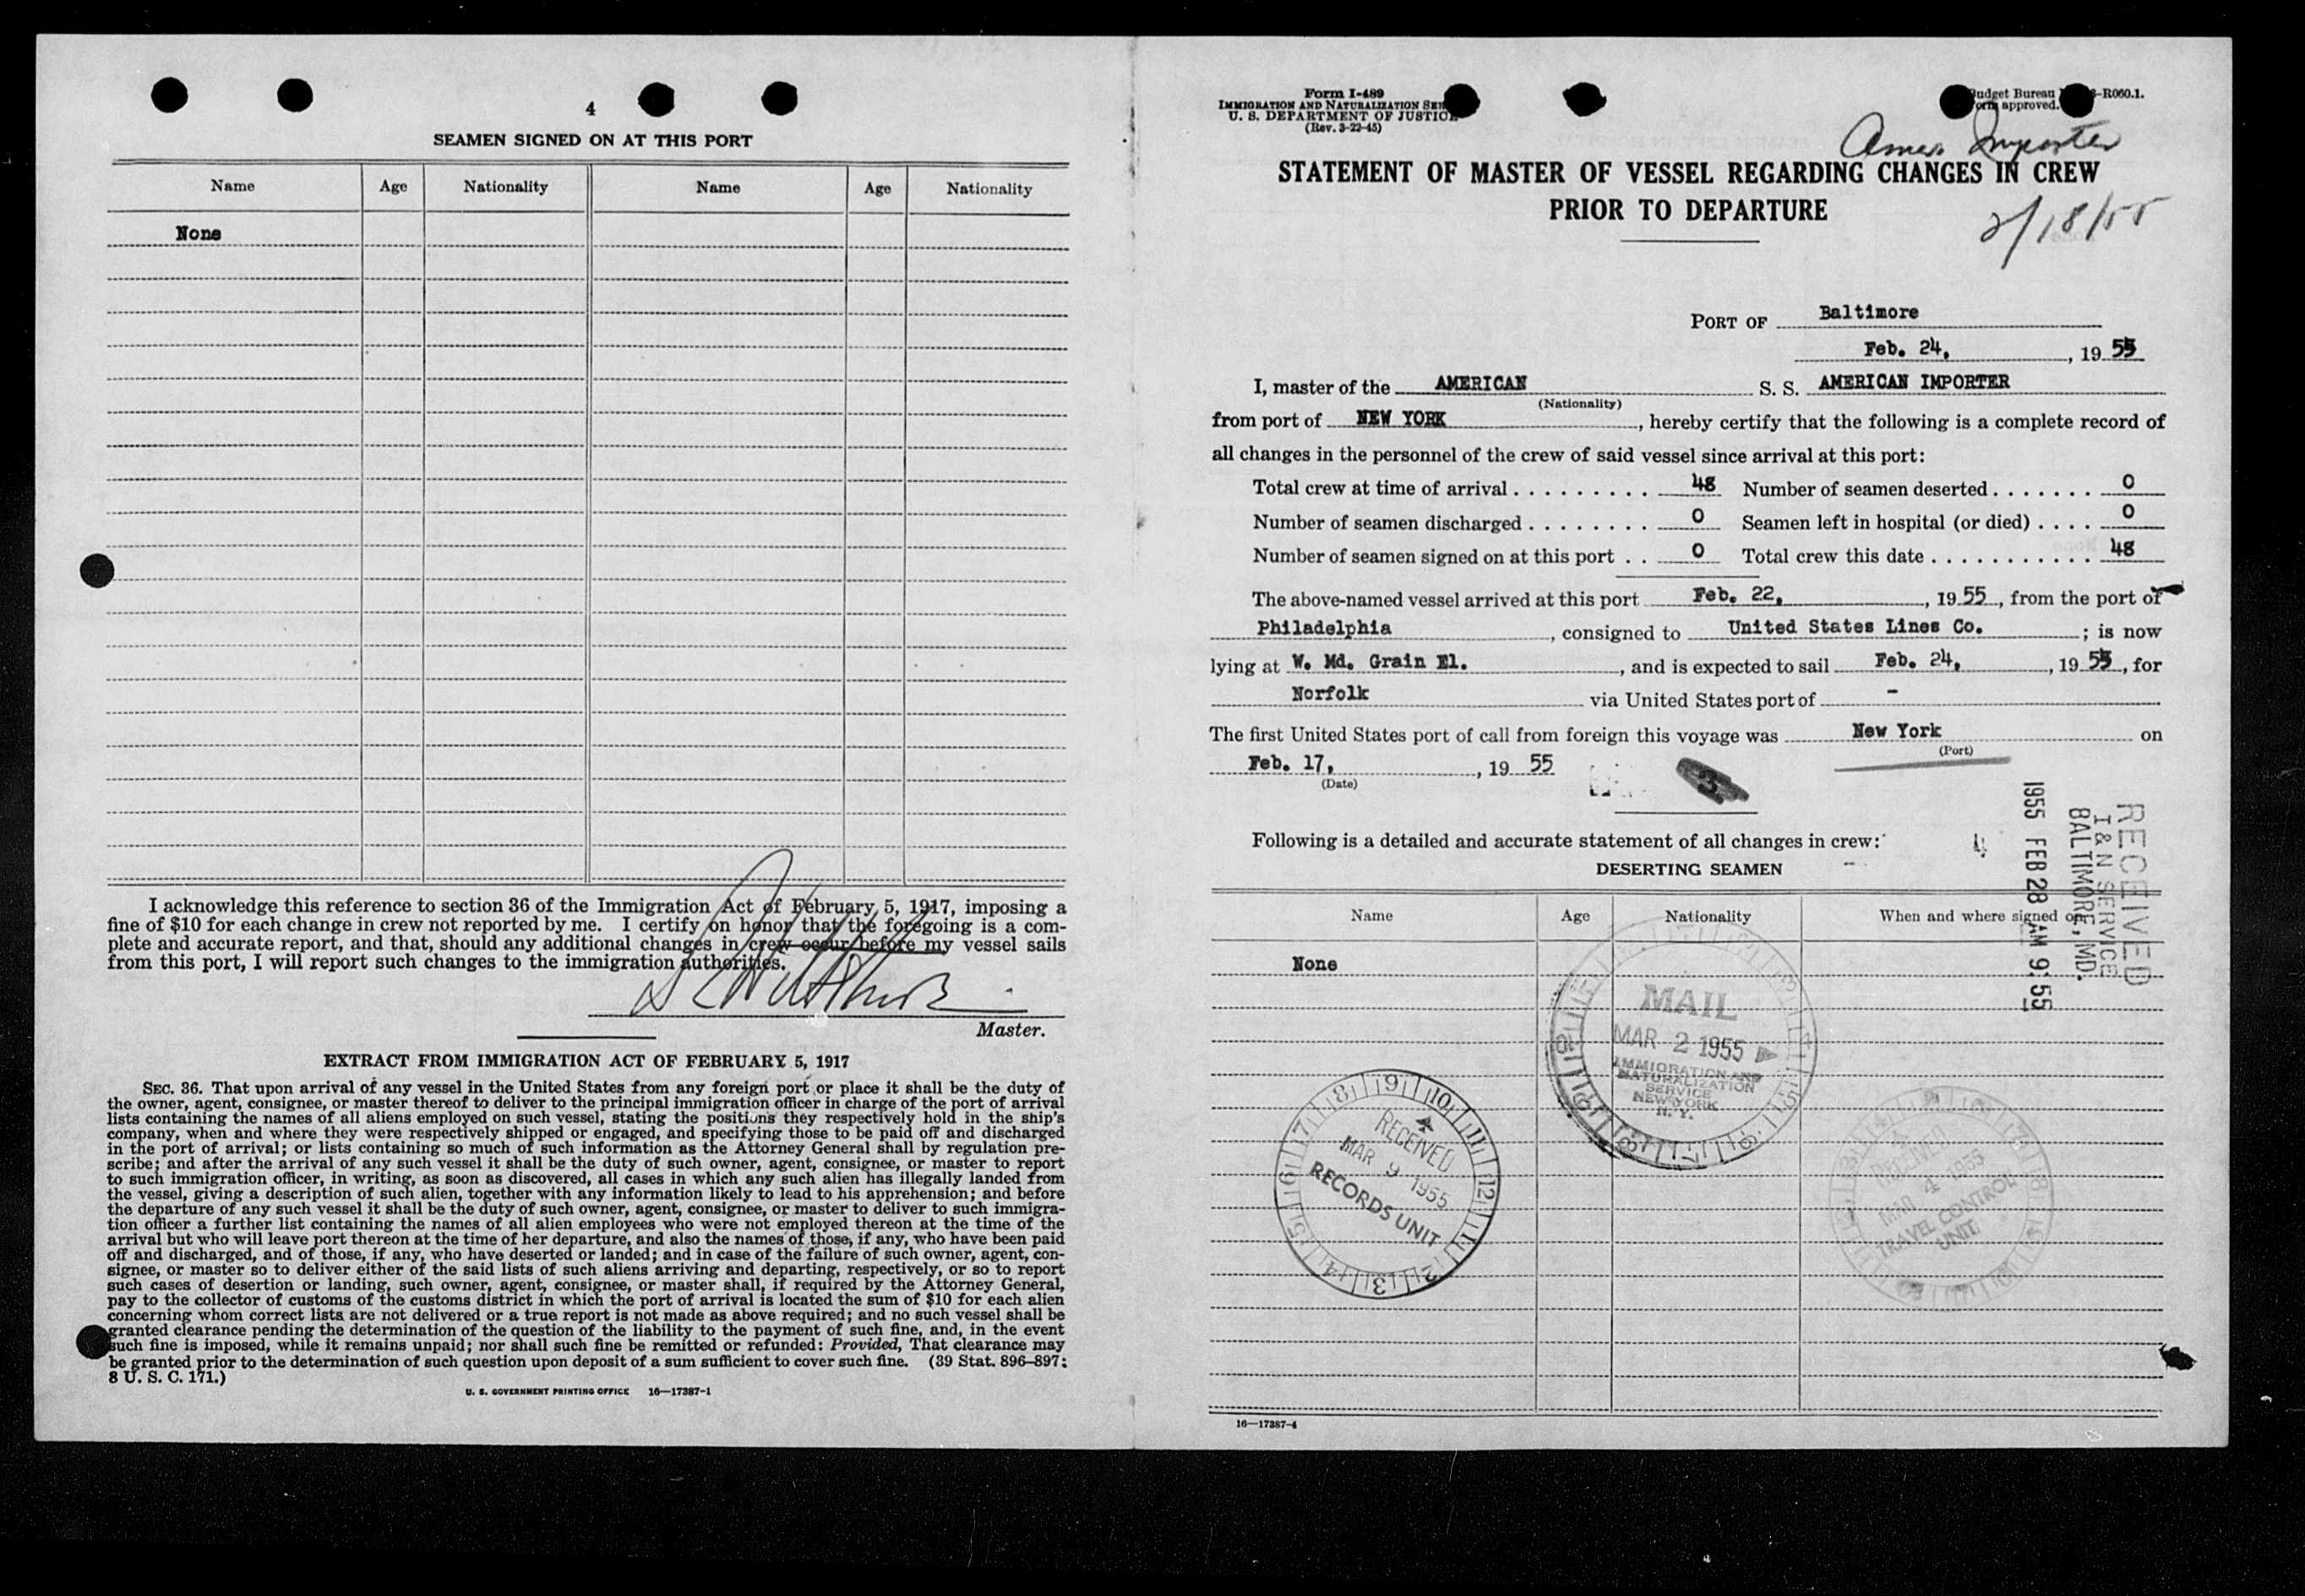 4
SEAMEN SIGNED ON AT THIS PORT
Name Age Nationality Name Age Nationality
None
I acknowledge this reference to section 36 of the Immigration Act of February 5, 1917, imposing a
fine of $10 for each change in crew not reported by me. I certify on honor that the foregoing is a com-
plete and accurate report, and that, should any additional changes in crew occur before my vessel sails
from this port, I will report such changes to the immigration authorities.
Master.
EXTRACT FROM IMMIGRATION ACT OF FEBRUARY 5, 1917
SEC. 36. That upon arrival of any vessel in the United States from any foreign port or place it shall be the duty of
the owner, agent, consignee, or master thereof to deliver to the principal immigration officer in charge of the port of arrival
lists containing the names of all aliens employed on such vessel, stating the positions they respectively hold in the ship's
company, when and where they were respectively shipped or engaged, and specifying those to be paid off and discharged
in the port of arrival; or lists containing so much of such information as the Attorney General shall by regulation pre-
scribe; and after the arrival of any such vessel it shall be the duty of such owner, agent, consignee, or master to report
to such immigration officer, in writing, as soon as discovered, all cases in which any such alien has illegally landed from
the vessel, giving a description of such alien, together with any information likely to lead to his apprehension; and before
the departure of any such vessel it shall be the duty of such owner, agent, consignee, or master to deliver to such immigra-
tion officer a further list containing the names of all alien employees who were not employed thereon at the time of the
arrival but who will leave port thereon at the time of her departure, and also the names of those, if any, who have been paid
off and discharged, and of those, if any, who have deserted or landed; and in case of the failure of such owner, agent, con-
signee, or master so to deliver either of the said lists of such aliens arriving and departing, respectively, or so to report
such cases of desertion or landing, such owner, agent, consignee, or master shall, if required by the Attorney General,
pay to the collector of customs of the customs district in which the port of arrival is located the sum of $10 for each alien
concerning whom correct lists are not delivered or a true report is not made as above required; and no such vessel shall be
granted clearance pending the determination of the question of the liability to the payment of such fine, and, in the event
such fine is imposed, while it remains unpaid; nor shall such fine be remitted or refunded: Provided, That clearance may
be granted prior to the determination of such question upon deposit of a sum sufficient to cover such fine. (39 Stat. 896-897;
8 U. S. C. 171.)
U. S. GOVERNMENT PRINTING OFFICE 16—17387-1
Form I-489
IMMIGRATION AND NATURALIZATION
U. S. DEPARTMENT OF JUSTICE
(Rev. 3-22-45)
Budget Bureau -R060.1.
approved.
Amer Importer
STATEMENT OF MASTER OF VESSEL REGARDING CHANGES IN CREW
PRIOR TO DEPARTURE
2/18/55
PORT OF Baltimore
Feb. 24, , 19 55
I, master of the AMERICAN S. S. AMERICAN IMPORTER
(Nationality)
from port of NEW YORK , hereby certify that the following is a complete record of
all changes in the personnel of the crew of said vessel since arrival at this port:
Total crew at time of arrival . . . . . . . . . 48 Number of seamen deserted . . . . . . . 0
Number of seamen discharged . . . . . . . . 0 Seamen left in hospital (or died) . . . . 0
Number of seamen signed on at this port . . 0 Total crew this date . . . . . . . . . . . 48
The above-named vessel arrived at this port Feb. 22, , 19 55 , from the port of
Philadelphia , consigned to United States Lines Co. ; is now
lying at W. Md. Grain El. , and is expected to sail Feb. 24, , 19 55 , for
Norfolk via United States port of -
The first United States port of call from foreign this voyage was New York on
(Port)
Feb. 17, , 19 55
(Date)
3
Following is a detailed and accurate statement of all changes in crew:
4
DESERTING SEAMEN
Name Age Nationality When and where signed on
None
RECEIVED
I & N SERVICE
BALTIMORE, MD.
1955 FEB 28 AM 9:55
MAIL
MAR 2 1955
IMMIGRATION AND
NATURALIZATION
SERVICE
NEW YORK
N. Y.
RECEIVED
MAR 9 1955
RECORDS UNIT
RECEIVED
MAR 4 1955
TRAVEL CONTROL
UNIT
16—17387-4